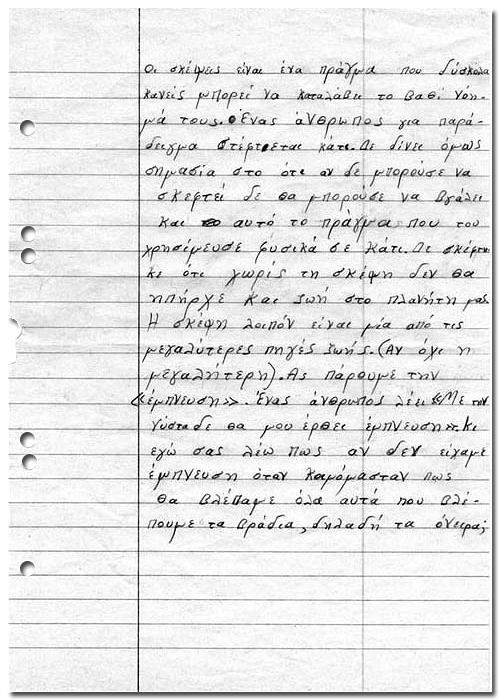 Οι σκέψεις είναι ένα πράγμα που δύσκολα
κανείς μπορεί να καταλάβει το βαθί νόη-
μά τους. Ένας άνθρωπος για παρά-
δειγμα στέφτεται κάτι. Δε δίνει όμως
σημασία στο ότι αν δε μπορούσε να
σκεφτεί δε θα μπορούσε να βγάλει
και αυτό το πράγμα που του
χρησίμευσε φυσικά σε κάτι. Δε σκέφτη-
κε ότι χωρίς τη σκέψη δεν θα
ηπήρχε και ζωή στο πλανήτη μας.
Η σκέψη λοιπόν είναι μία από τις
μεγαλύτερες πηγές ζωής. (Αν όχι η
μεγαλήτερη). Ας πάρουμε την
«έμπνευση». Ένας άνθρωπος λέει «Με την
νύστα δε θα μου έρθει έμπνευση». Κι
εγώ σας λέω πως αν δεν είχαμε
έμπνευση όταν καμόμασταν πως
θα βλέπαμε όλα αυτά που βλέ-
πουμε τα βράδια, δηλαδή τα όνειρα;